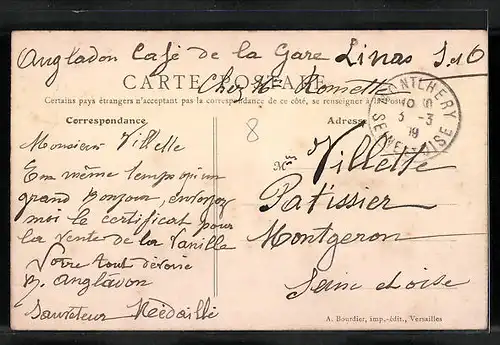 Angladon Café de la Gare Linas S et O
CARTE POSTALE
Chez Mr
Certains pays étrangers n'acceptant pas la correspondance de ce côté, se renseigner à la Poste
Correspondance
Adresse
MONTLHERY
3 - 3
19
SEINE-ET-OISE
8
Monsieur Villette
Em même temps qu'un
grand Bonjour, envoyez
moi le certificat pour
la vente de la Vanille
Votre tout dévoué
M. Angladon
Sauveteur Médaillé
M Villette
Patissier
Montgeron
Seine et oise
A. Bourdier, imp.-édit., Versailles